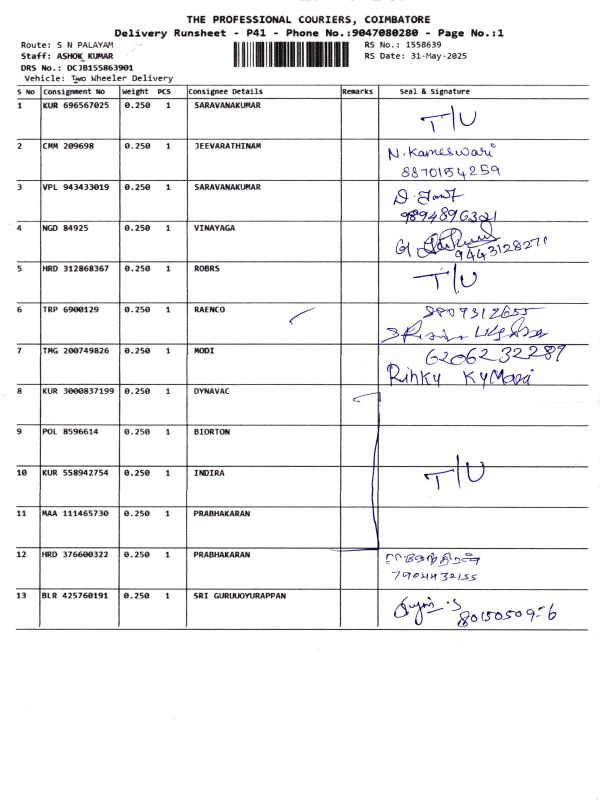 THE PROFESSIONAL COURIERS, COIMBATORE
Delivery Runsheet - P41 - Phone No.:9047080280 - Page No.:1
Route: S N PALAYAM RS No.: 1558639
Staff: ASHOK KUMAR RS Date: 31-May-2025
DRS No.: DCJB155863901
Vehicle: Two Wheeler Delivery
S No Consignment No Weight PCS Consignee Details Remarks Seal & Signature
1 KUR 696567025 0.250 1 SARAVANAKUMAR T/U
2 CMM 209698 0.250 1 JEEVARATHINAM N. Kameswari
8870154259
3 VPL 943433019 0.250 1 SARAVANAKUMAR
9894896321
4 NGD 84925 0.250 1 VINAYAGA
9443128271
5 HRD 312868367 0.250 1 ROBRS T/U
6 TRP 6900129 0.250 1 RAENCO 9809312655
7 TMG 200749826 0.250 1 MODI 6206232289
Rinky Kymari
8 KUR 3000837199 0.250 1 DYNAVAC
9 POL 8596614 0.250 1 BIORTON
10 KUR 558942754 0.250 1 INDIRA T/U
11 MAA 111465730 0.250 1 PRABHAKARAN
12 HRD 376600322 0.250 1 PRABHAKARAN
7904432155
13 BLR 425760191 0.250 1 SRI GURUUOYURAPPAN